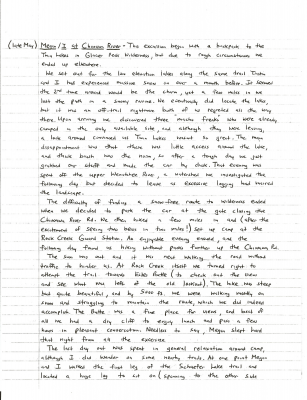 (late May) Megan/I at Chiwawa River - This excursion began with a backpack to the
Twin Lakes in Glacier Peak Wilderness, but due to rough circumstances we
ended up elsewhere.
We set out for the low elevation lakes along the same trail Justin
and I had experienced massive snow in over a month before. It seemed
the 2nd time around would be the charm, yet a few miles in we
lost the path in a snowy ravine. We eventually did locate the lake,
but it was an off-trail mysterious bush of us regarded all the way
there. Upon arriving we discovered three "macho freaks" who were already
camped in the only available site, and although they were leaving,
a look around convinced us Twin Lakes wasn't so great. The main
disappointment was that there was little access around the lake,
and thick brush was the norm, so after a tough day we just
grabbed our stuff and made the car by dusk. That evening was
spent off the upper Wenatchee River, a watershed we investigated the
following day, but decided to leave as excessive logging had marred
the landscape.
The difficulty of finding a snow-free route to wilderness ended
when we decided to park the car at the gate closing the
Chiwawa River Rd. We then hiked a few miles in and (after the
excitement of seeing two bears in two miles!) set up camp at the
Rock Creek Guard Station. An enjoyable evening ensued, and the
following day found us hiking without packs further up the Chiwawa Rd.
The sun was out and it was neat walking the road without
traffic to hinder us. At Rock Creek itself we turned right to
attempt the trail towards Estes Butte (to check out the view
and see what was left of the old lookout). The hike was steep
but quite beautiful, and by 5000 ft. we were walking mostly on
snow and struggling to maintain the route, which we did indeed
accomplish. The Butte was a fine place for views and best of
all we had a dry cliff to enjoy lunch and pass a few
hours in pleasant conversation. Needless to say, Megan slept hard
that night from all the exercise.
The last day out was spent in general relaxation around camp,
although I did wander on some nearby trails. At one point Megan
and I walked the first leg of the Schaefer Lake trail and
located a huge log to sit on (spanning to the other side